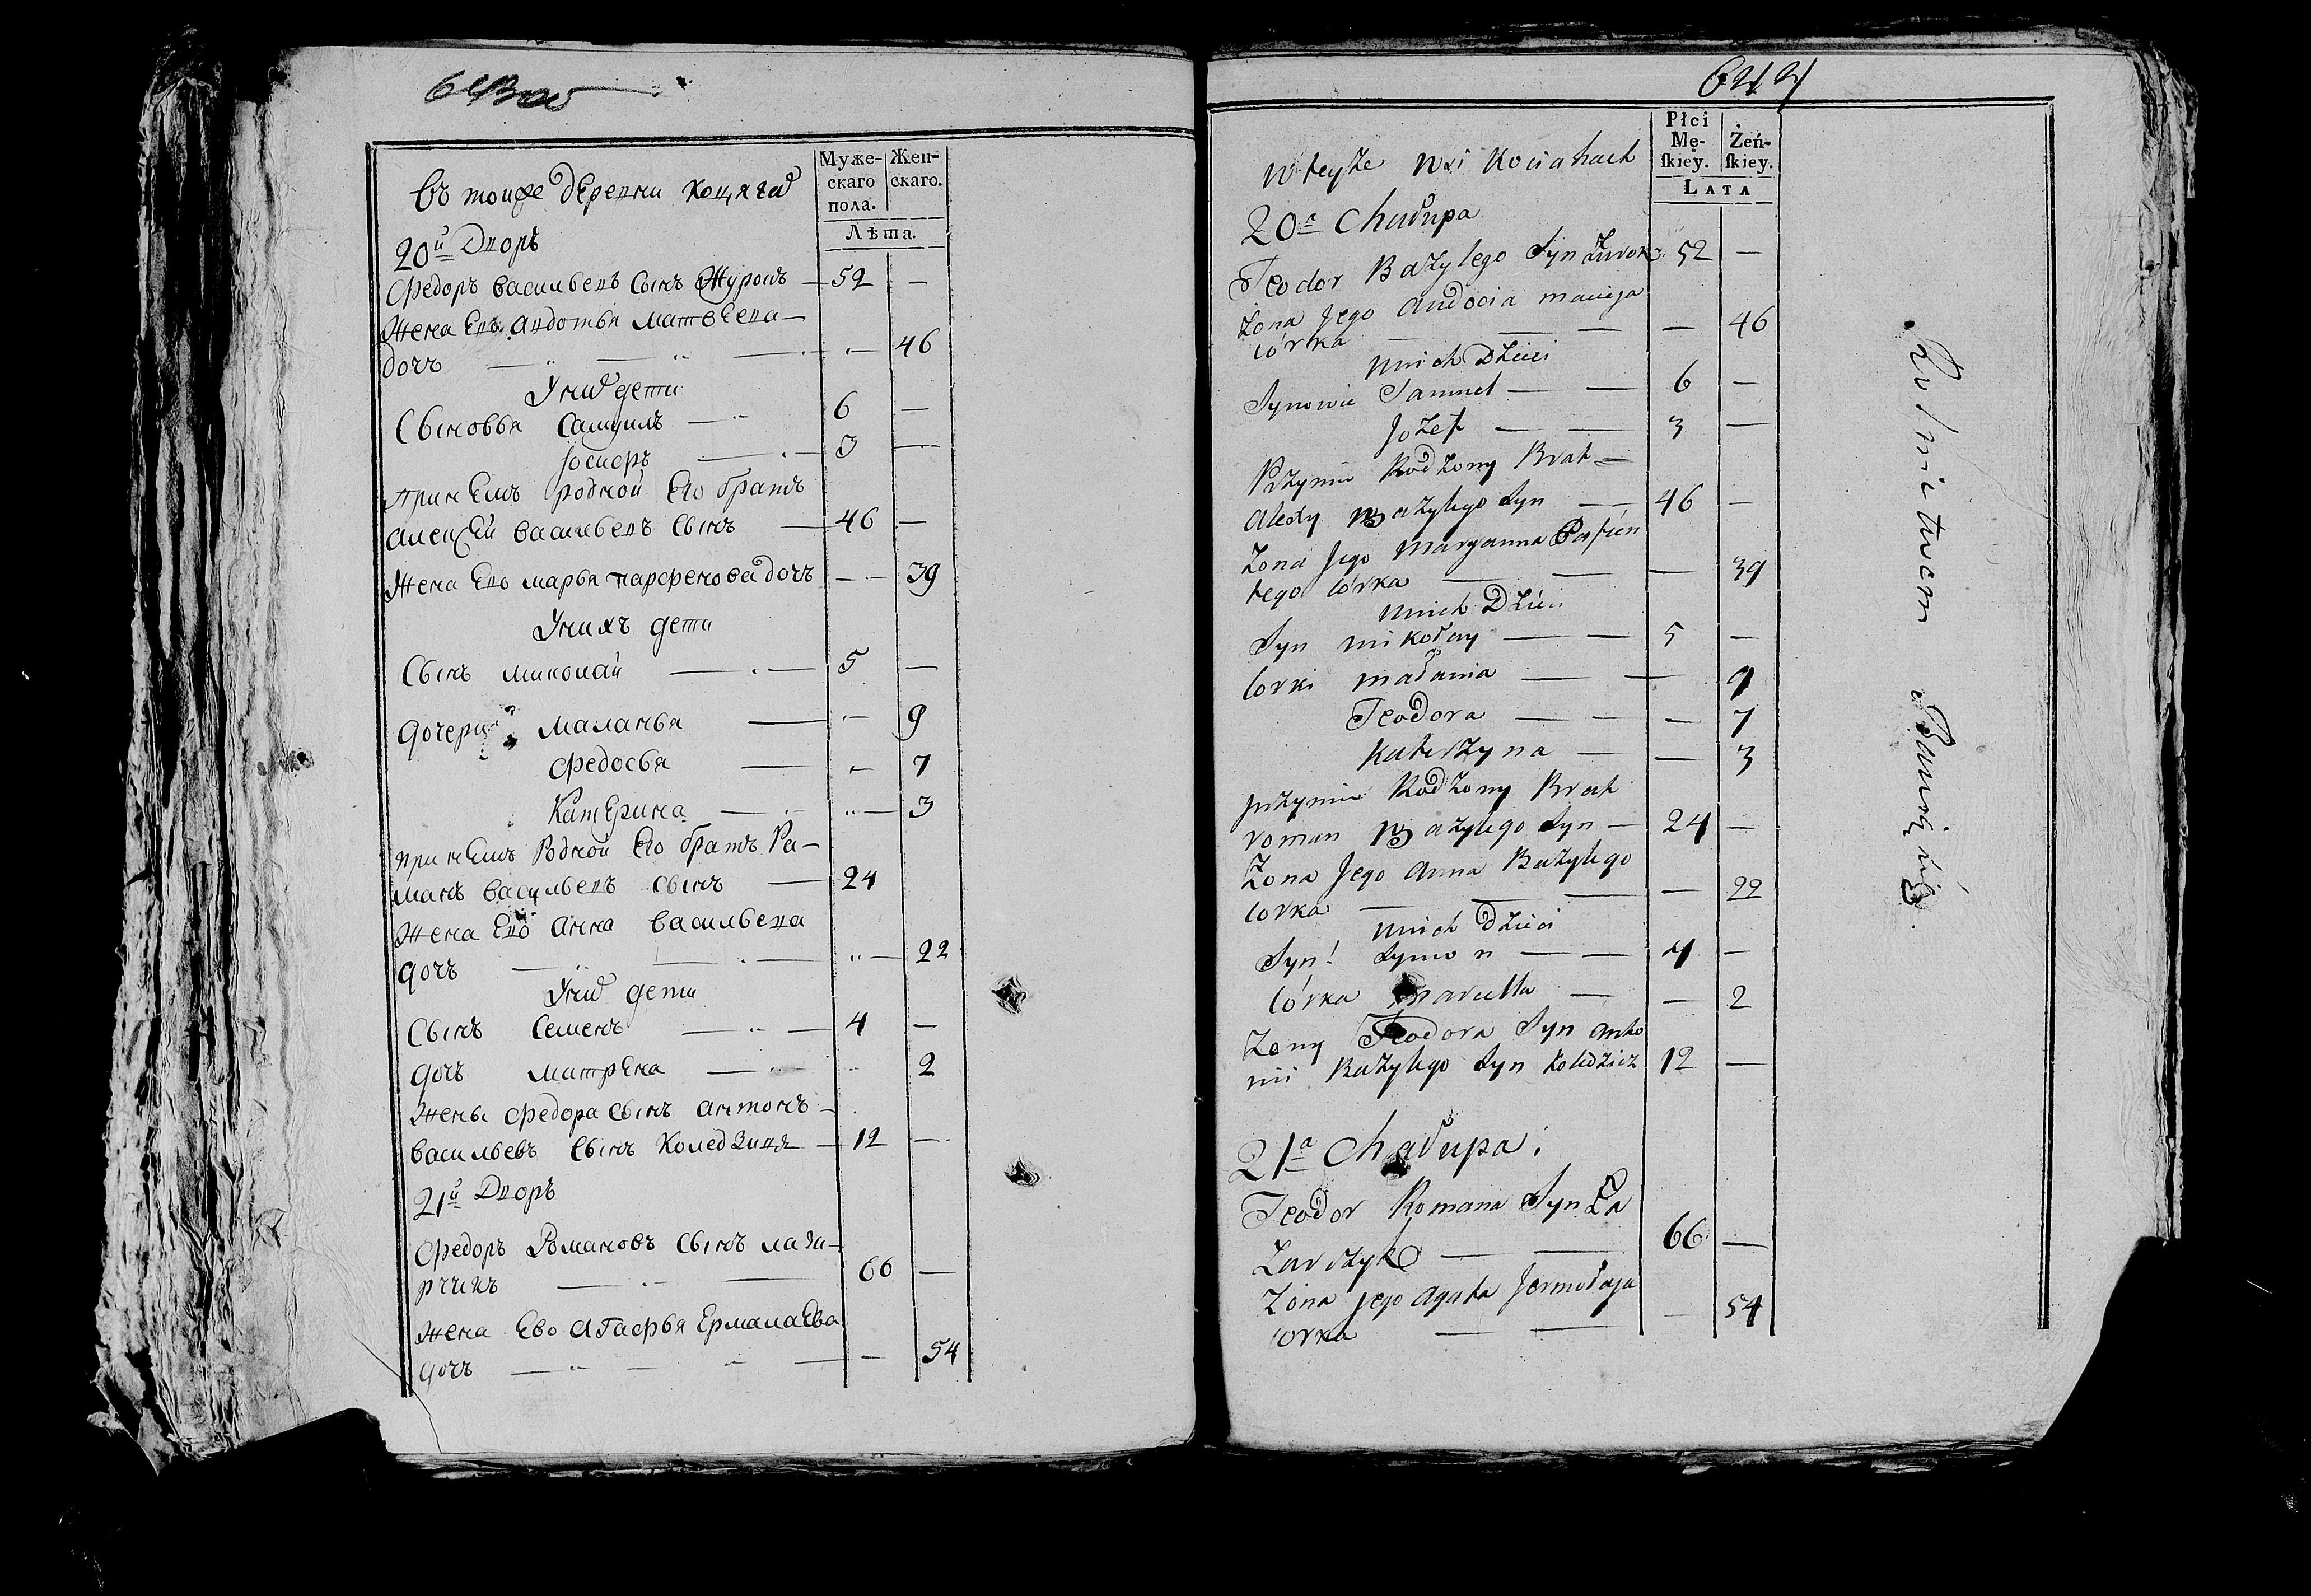 Муже-
скаго
пола.
Жен-
скаго.
Лѣта.
въ тойже деревни Коцягахъ
20й Дворъ
Федоръ Васильевъ сынъ Журокъ — 52 —
Жена Ево Авдотья Матвеева
дочь — — 46
У них дети
Сыновья Самуилъ — 6 —
Iосифъ — 3 —
При немъ родной Его братъ
Алексей Васильевъ сынъ — 46 —
Жена Ево Марья Парфенова дочь — 39
У нихъ дети
Сынъ Миколай — 5 —
Дочери Маланья — — 9
Федосья — — 7
Катерина — — 3
При немъ Родной Его братъ Ра-
манъ Васильевъ сынъ — 24
Жена Ево Анна Васильева
дочь — — 22
У них дети
Сынъ Семенъ — 4 —
Дочь Матрена — 2
Жены Федора сынъ Антонъ
Васильевъ сынъ — 12 —
21й Дворъ
Федоръ Романовъ сынъ Лаза-
рчикъ — 66 —
Жена Ево Агафья Ермалаева
дочь — — 54
644
Płci
Mę-
ſkiey.
Żeń-
ſkiey.
LATA
w teyże wsi Kociahach
20a Chałupa
Teodor Bazylego Syn Żurok 52 —
Żona Jego Audocia Macieja
córka — — — 46
U nich Dzieci
Synowie Samuel — — 6 —
Jozef — — 3 —
Przy nim Rodzony Brat —
Alexy Bazylego Syn — 46 —
Zona Jego Maryanna Parfien
tego córka — — — 39
U nich Dzieci
Syn Mikołay — — 5 —
Corki Małania — — 9
Teodora — — — 7
Katerzyna — — 3
przy nim Rodzony Brat
Roman Bazylego Syn — 24 —
Zona Jego Anna Bazylego
corka — — — — 22
U nich Dzieci
Syn Symon — — 4 —
Córka — — 2
Zony Teodora Syn Anto
nii Bazylego Syn Koledzicz 12 —
21a Chałupa
Teodor Romana Syn Ła
zarczyk — — 66 —
Zona Jego Agata Jermołaja
corka — — — 54